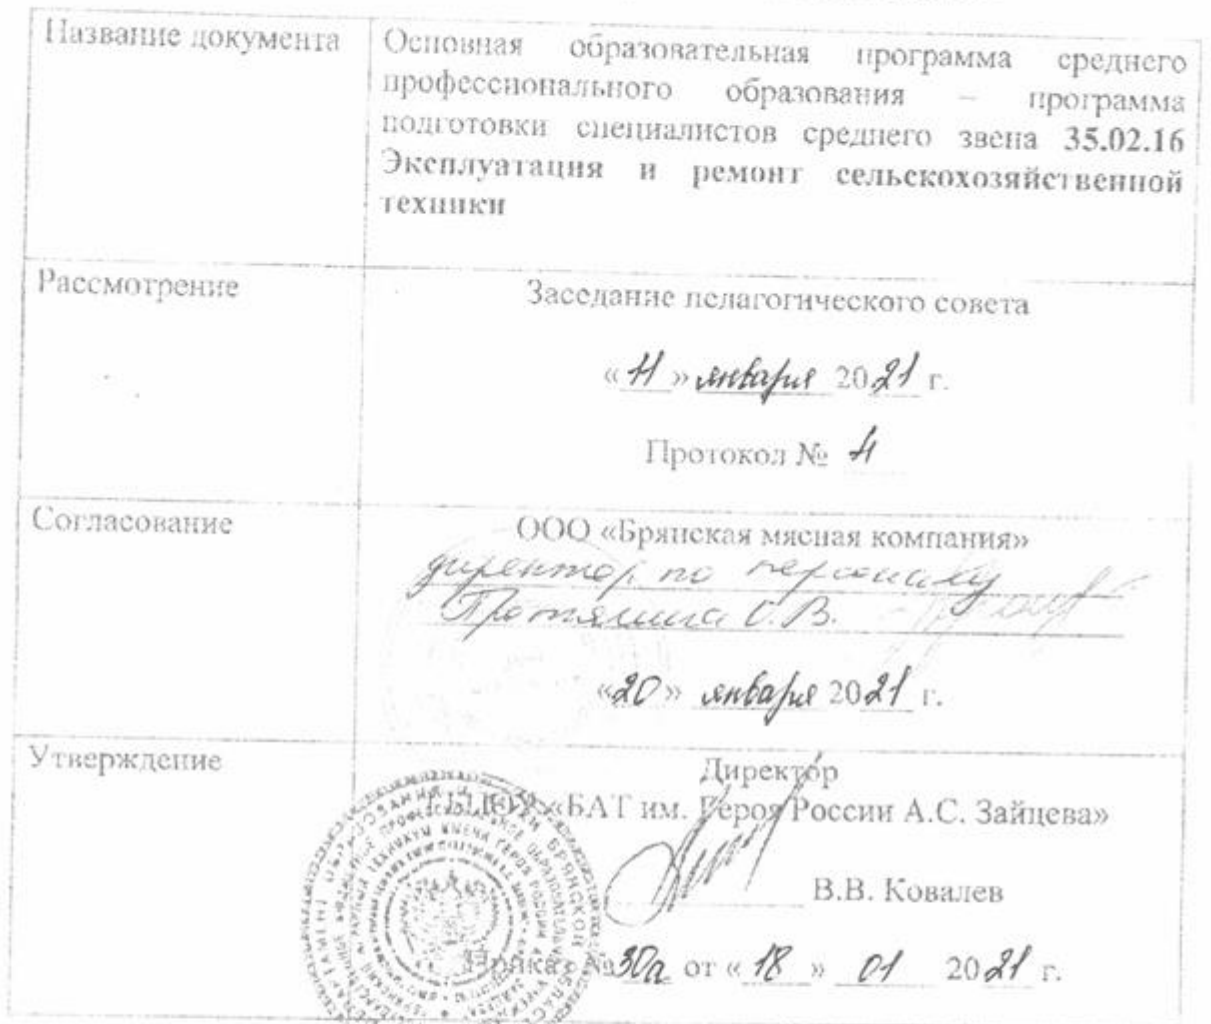 Название документа
Основная образовательная программа среднего
профессионального образования – программа
подготовки специалистов среднего звена 35.02.16
Эксплуатация и ремонт сельскохозяйственной
техники
Рассмотрение
Заседание педагогического совета
«11» января 2021 г.
Протокол № 4
Согласование
ООО «Брянская мясная компания»
директор по персоналу
О.В.
«20» января 2021 г.
Утверждение
Директор
ГБПОУ «БАТ им. Героя России А.С. Зайцева»
В.В. Ковалев
Приказ №30а от «18» 01 2021 г.